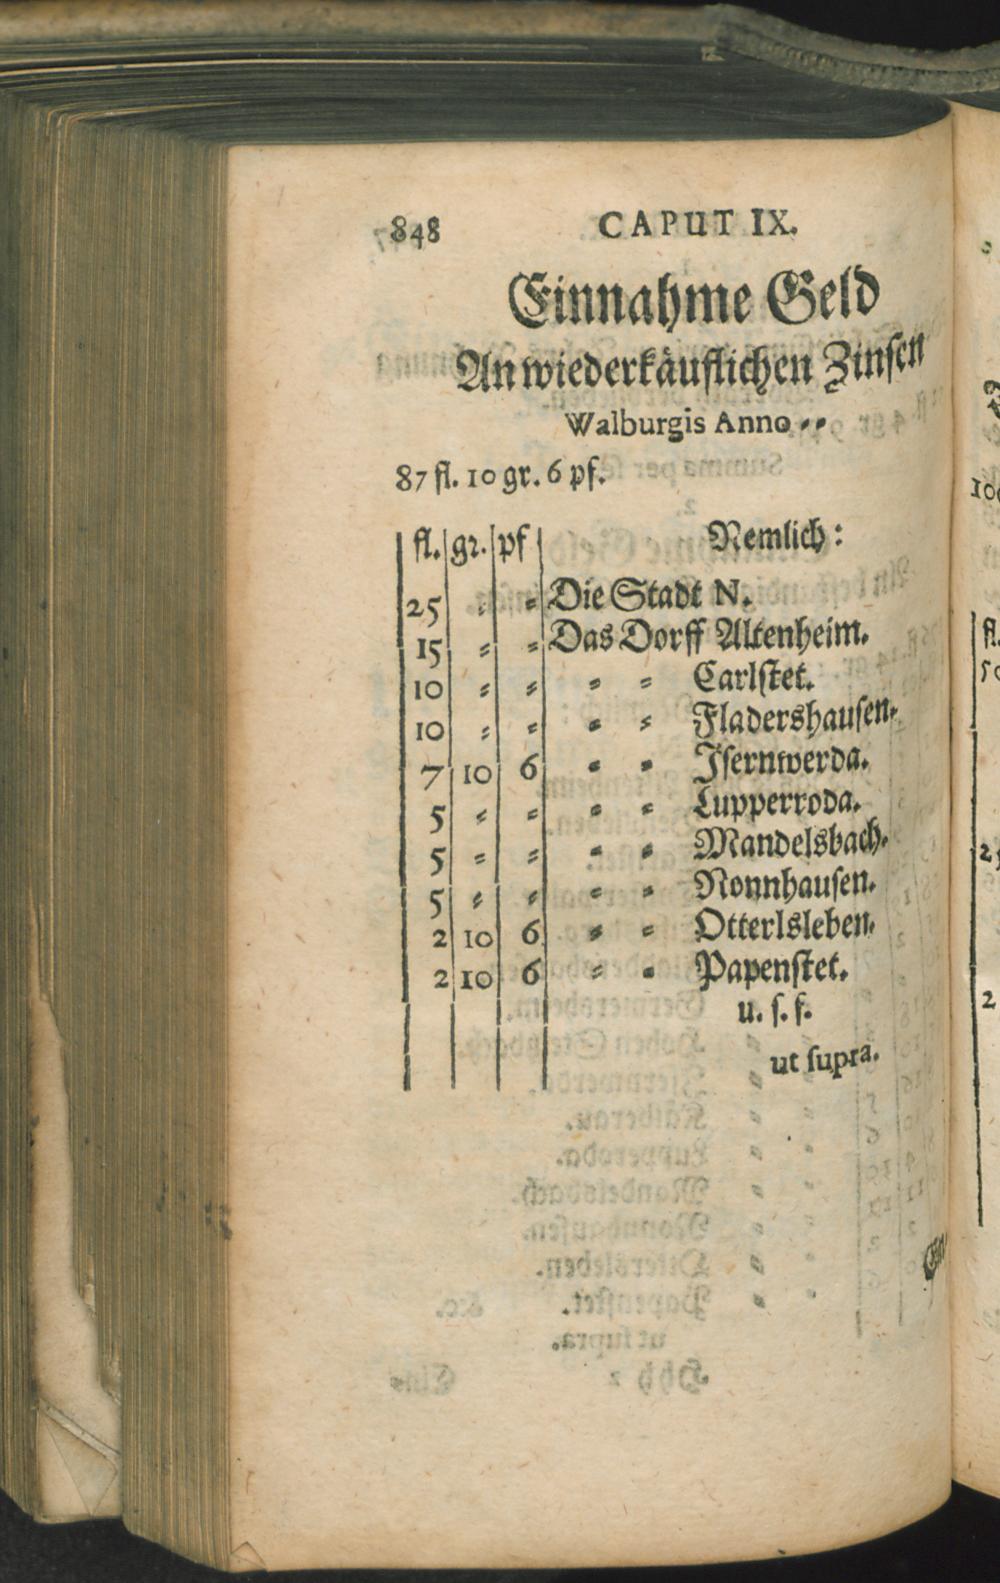 848 CAPUT IX.
Einnahme Geld
An wiederkäuflichen Zinsen
Walburgis Anno ⸗ ⸗
87 fl. 10 gr. 6 pf.
fl. gr. pf Nemlich:
25 ⸗ ⸗ Die Stadt N.
15 ⸗ ⸗ Das Dorff Altenheim.
10 ⸗ ⸗ ⸗ ⸗ Carlſtet.
10 ⸗ ⸗ ⸗ ⸗ Fladershauſen.
7 10 6 ⸗ ⸗ Iſernwerda.
5 ⸗ ⸗ ⸗ ⸗ Lupperroda.
5 ⸗ ⸗ ⸗ ⸗ Mandelsbach.
5 ⸗ ⸗ ⸗ ⸗ Nonnhauſen.
2 10 6 ⸗ ⸗ Otterlsleben.
2 10 6 ⸗ ⸗ Papenſtet.
u. ſ. f.
ut ſupra.